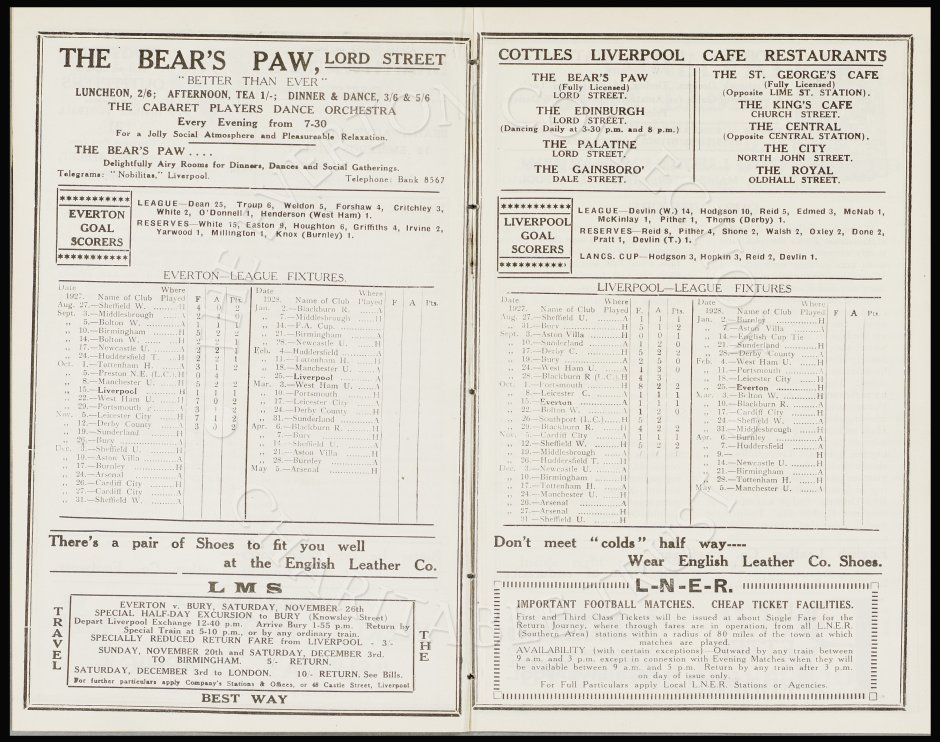 THE BEAR'S PAW, LORD STREET
"BETTER THAN EVER"
LUNCHEON, 2/6; AFTERNOON, TEA 1/-; DINNER & DANCE, 3/6 & 5/6
THE CABARET PLAYERS DANCE ORCHESTRA
Every Evening from 7-30
For a Jolly Social Atmosphere and Pleasureable Relaxation.
THE BEAR'S PAW . . . .
Delightfully Airy Rooms for Dinners, Dances and Social Gatherings.
Telegrams: "Nobilitas," Liverpool. Telephone: Bank 8567
EVERTON GOAL SCORERS
LEAGUE—Dean 25, Troup 6, Weldon 5, Forshaw 4, Critchley 3,
White 2, O'Donnell 1, Henderson (West Ham) 1.
RESERVES—White 15, Easton 9, Houghton 6, Griffiths 4, Irvine 2,
Yarwood 1, Millington 1, Knox (Burnley) 1.
EVERTON—LEAGUE FIXTURES.
Date Where
1927. Name of Club Played F A Pts.
Aug. 27.—Sheffield W. H 4 0 2
Sept. 3.—Middlesbrough A 2 4 0
„ 5.—Bolton W. H 1 1 1
„ 10.—Birmingham H 5 2 2
„ 14.—Bolton W. A
„ 17.—Newcastle U. H 2 2 1
„ 24.—Huddersfield T. H 2 2 1
Oct. 1.—Tottenham H. A 3 1 2
„ 5.—Preston N.E. (L.C.) H 3 4
„ 8.—Manchester U. H 5 2 2
„ 15.—Liverpool H 1 1 1
„ 22.—West Ham U. H 7 0 2
„ 29.—Portsmouth A 3 1 2
Nov. 5.—Leicester City H 7 1 2
„ 12.—Derby County A 3 0 2
„ 19.—Sunderland H
„ 26.—Bury A
Dec. 3.—Sheffield U. H
„ 10.—Aston Villa A
„ 17.—Burnley H
„ 24.—Arsenal A
„ 26.—Cardiff City H
„ 27.—Cardiff City A
„ 31.—Sheffield W. A
Date Where
1928. Name of Club Played F A Pts.
Jan. 2.—Blackburn R. A
„ 7.—Middlesbrough H
„ 14.—F.A. Cup.
„ 21.—Birmingham A
„ 28.—Newcastle U. H
Feb. 4.—Huddersfield A
„ 11.—Tottenham H. H
„ 18.—Manchester U. A
„ 25.—Liverpool A
Mar. 3.—West Ham U. H
„ 10.—Portsmouth H
„ 17.—Leicester City A
„ 24.—Derby County H
„ 31.—Sunderland A
Apr. 6.—Blackburn R. H
„ 7.—Bury H
„ 14.—Sheffield U. A
„ 21.—Aston Villa H
„ 28.—Burnley A
May 5.—Arsenal H
There's a pair of Shoes to fit you well
at the English Leather Co.
LMS
TRAVEL THE
EVERTON v. BURY, SATURDAY, NOVEMBER 26th
SPECIAL HALF-DAY EXCURSION to BURY (Knowsley Street)
Depart Liverpool Exchange 12-40 p.m. Arrive Bury 1-55 p.m. Return by
Special Train at 5-10 p.m., or by any ordinary train.
SPECIALLY REDUCED RETURN FARE from LIVERPOOL 3/-
SUNDAY, NOVEMBER 20th and SATURDAY, DECEMBER 3rd.
TO BIRMINGHAM. 5/- RETURN.
SATURDAY, DECEMBER 3rd to LONDON. 10/- RETURN. See Bills.
For further particulars apply Company's Stations & Offices, or 48 Castle Street, Liverpool
BEST WAY
COTTLES LIVERPOOL CAFE RESTAURANTS
THE BEAR'S PAW
(Fully Licensed)
LORD STREET.
THE EDINBURGH
LORD STREET.
(Dancing Daily at 3-30 p.m. and 8 p.m.)
THE PALATINE
LORD STREET.
THE GAINSBORO'
DALE STREET.
THE ST. GEORGE'S CAFE
(Fully Licensed)
(Opposite LIME ST. STATION).
THE KING'S CAFE
CHURCH STREET.
THE CENTRAL
(Opposite CENTRAL STATION).
THE CITY
NORTH JOHN STREET.
THE ROYAL
OLDHALL STREET.
LIVERPOOL GOAL SCORERS
LEAGUE—Devlin (W.) 14, Hodgson 10, Reid 5, Edmed 3, McNab 1,
McKinlay 1, Pither 1, Thoms (Derby) 1.
RESERVES—Reid 8, Pither 4, Shone 2, Walsh 2, Oxley 2, Done 2,
Pratt 1, Devlin (T.) 1.
LANCS. CUP—Hodgson 3, Hopkin 3, Reid 2, Devlin 1.
LIVERPOOL—LEAGUE FIXTURES
Date Where
1927. Name of Club Played F. A Pts.
Aug. 27.—Sheffield U. A 1 1 1
„ 31.—Bury H 5 1 2
Sept. 3.—Aston Villa H 0 0 1
„ 10.—Sunderland A 1 2 0
„ 17.—Derby C. H 5 2 2
„ 19.—Bury A 2 5 0
„ 24.—West Ham U. A 1 3 0
„ 28.—Blackburn R (L.C.) H 4 3
Oct. 1.—Portsmouth H 8 2 2
„ 8.—Leicester C. A 1 1 1
„ 15.—Everton A 1 1 1
„ 22.—Bolton W. A 1 2 0
„ 26.—Southport (L.C.) H 5 2
„ 29.—Blackburn R. H 4 2 2
Nov. 5.—Cardiff City A 1 1 1
„ 12.—Sheffield W. H 5 2 2
„ 19.—Middlesbrough A
„ 26.—Huddersfield T. H
Dec. 3.—Newcastle U. A
„ 10.—Birmingham H
„ 17.—Tottenham H. A
„ 24.—Manchester U. H
„ 26.—Arsenal A
„ 27.—Arsenal H
„ 31—Sheffield U. H
Date Where
1928. Name of Club Played F A Pts.
Jan. 2.—Burnley H
„ 7.—Aston Villa A
„ 14.—English Cup Tie
„ 21.—Sunderland H
„ 28.—Derby County A
Feb. 4.—West Ham U. H
„ 11.—Portsmouth A
„ 18.—Leicester City H
„ 25.—Everton H
Mar. 3.—Bolton W. H
„ 10.—Blackburn R. A
„ 17.—Cardiff City H
„ 24.—Sheffield W. A
„ 31.—Middlesbrough H
Apr. 6.—Burnley A
„ 7.—Huddersfield A
„ 9.— H
„ 14.—Newcastle U. H
„ 21.—Birmingham A
„ 28.—Tottenham H. H
May 5.—Manchester U. A
Don't meet "colds" half way----
Wear English Leather Co. Shoes.
L-N-E-R.
IMPORTANT FOOTBALL MATCHES. CHEAP TICKET FACILITIES.
First and Third Class Tickets will be issued at about Single Fare for the
Return Journey, where through fares are in operation, from all L.N.E.R.
(Southern Area) stations within a radius of 80 miles of the town at which
matches are played.
AVAILABILITY (with certain exceptions)—Outward by any train between
9 a.m. and 3 p.m. except in connexion with Evening Matches when they will
be available between 9 a.m. and 5 p.m. Return by any train after 3 p.m.
on day of issue only.
For Full Particulars apply Local L.N.E.R. Stations or Agencies.